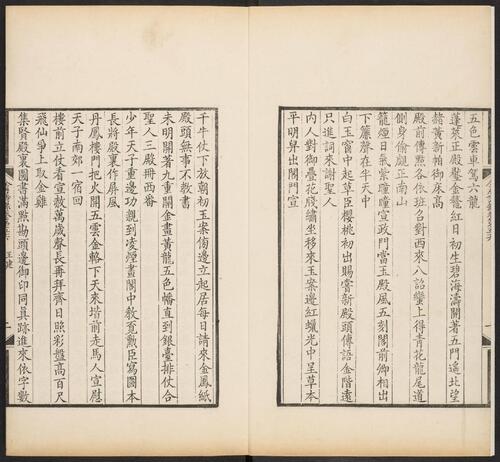 五色雲車駕六龍
蓬萊正殿壓金鰲紅日初生碧海濤開著五門遙北望
赭黃新帕御床高
殿前傳點各依班召對西來八詔蠻上得青花龍尾道
側身偷覷正南山
龍煙日氣紫曈曈宣政門當玉殿風五刻閣前卿相出
下簾聲在半天中
白玉窗中起草臣櫻桃初出賜嘗新殿頭傳語金階遠
只進詞來謝聖人
內人對御疊花牋繡坐移來玉案邊紅蠟光中呈草本
平明舁出閤門宣
千牛仗下放朝初玉案傍邊立起居每日請來金鳳紙
殿頭無事不教書
未明開著九重關金畫黃龍五色幡直到銀臺排仗合
聖人三殿冊西番
少年天子重邊功親到凌煙畫閣中教覓勳臣寫圖本
長將殿裏作屏風
丹鳳樓門把火開五雲金輅下天來堦前走馬人宣慰
天子南郊一宿回
樓前立仗看宣赦萬歲聲長再拜齊日照彩盤高百尺
飛仙爭上取金雞
集賢殿裏圖書滿點勘頭邊御印同真跡進來依字數